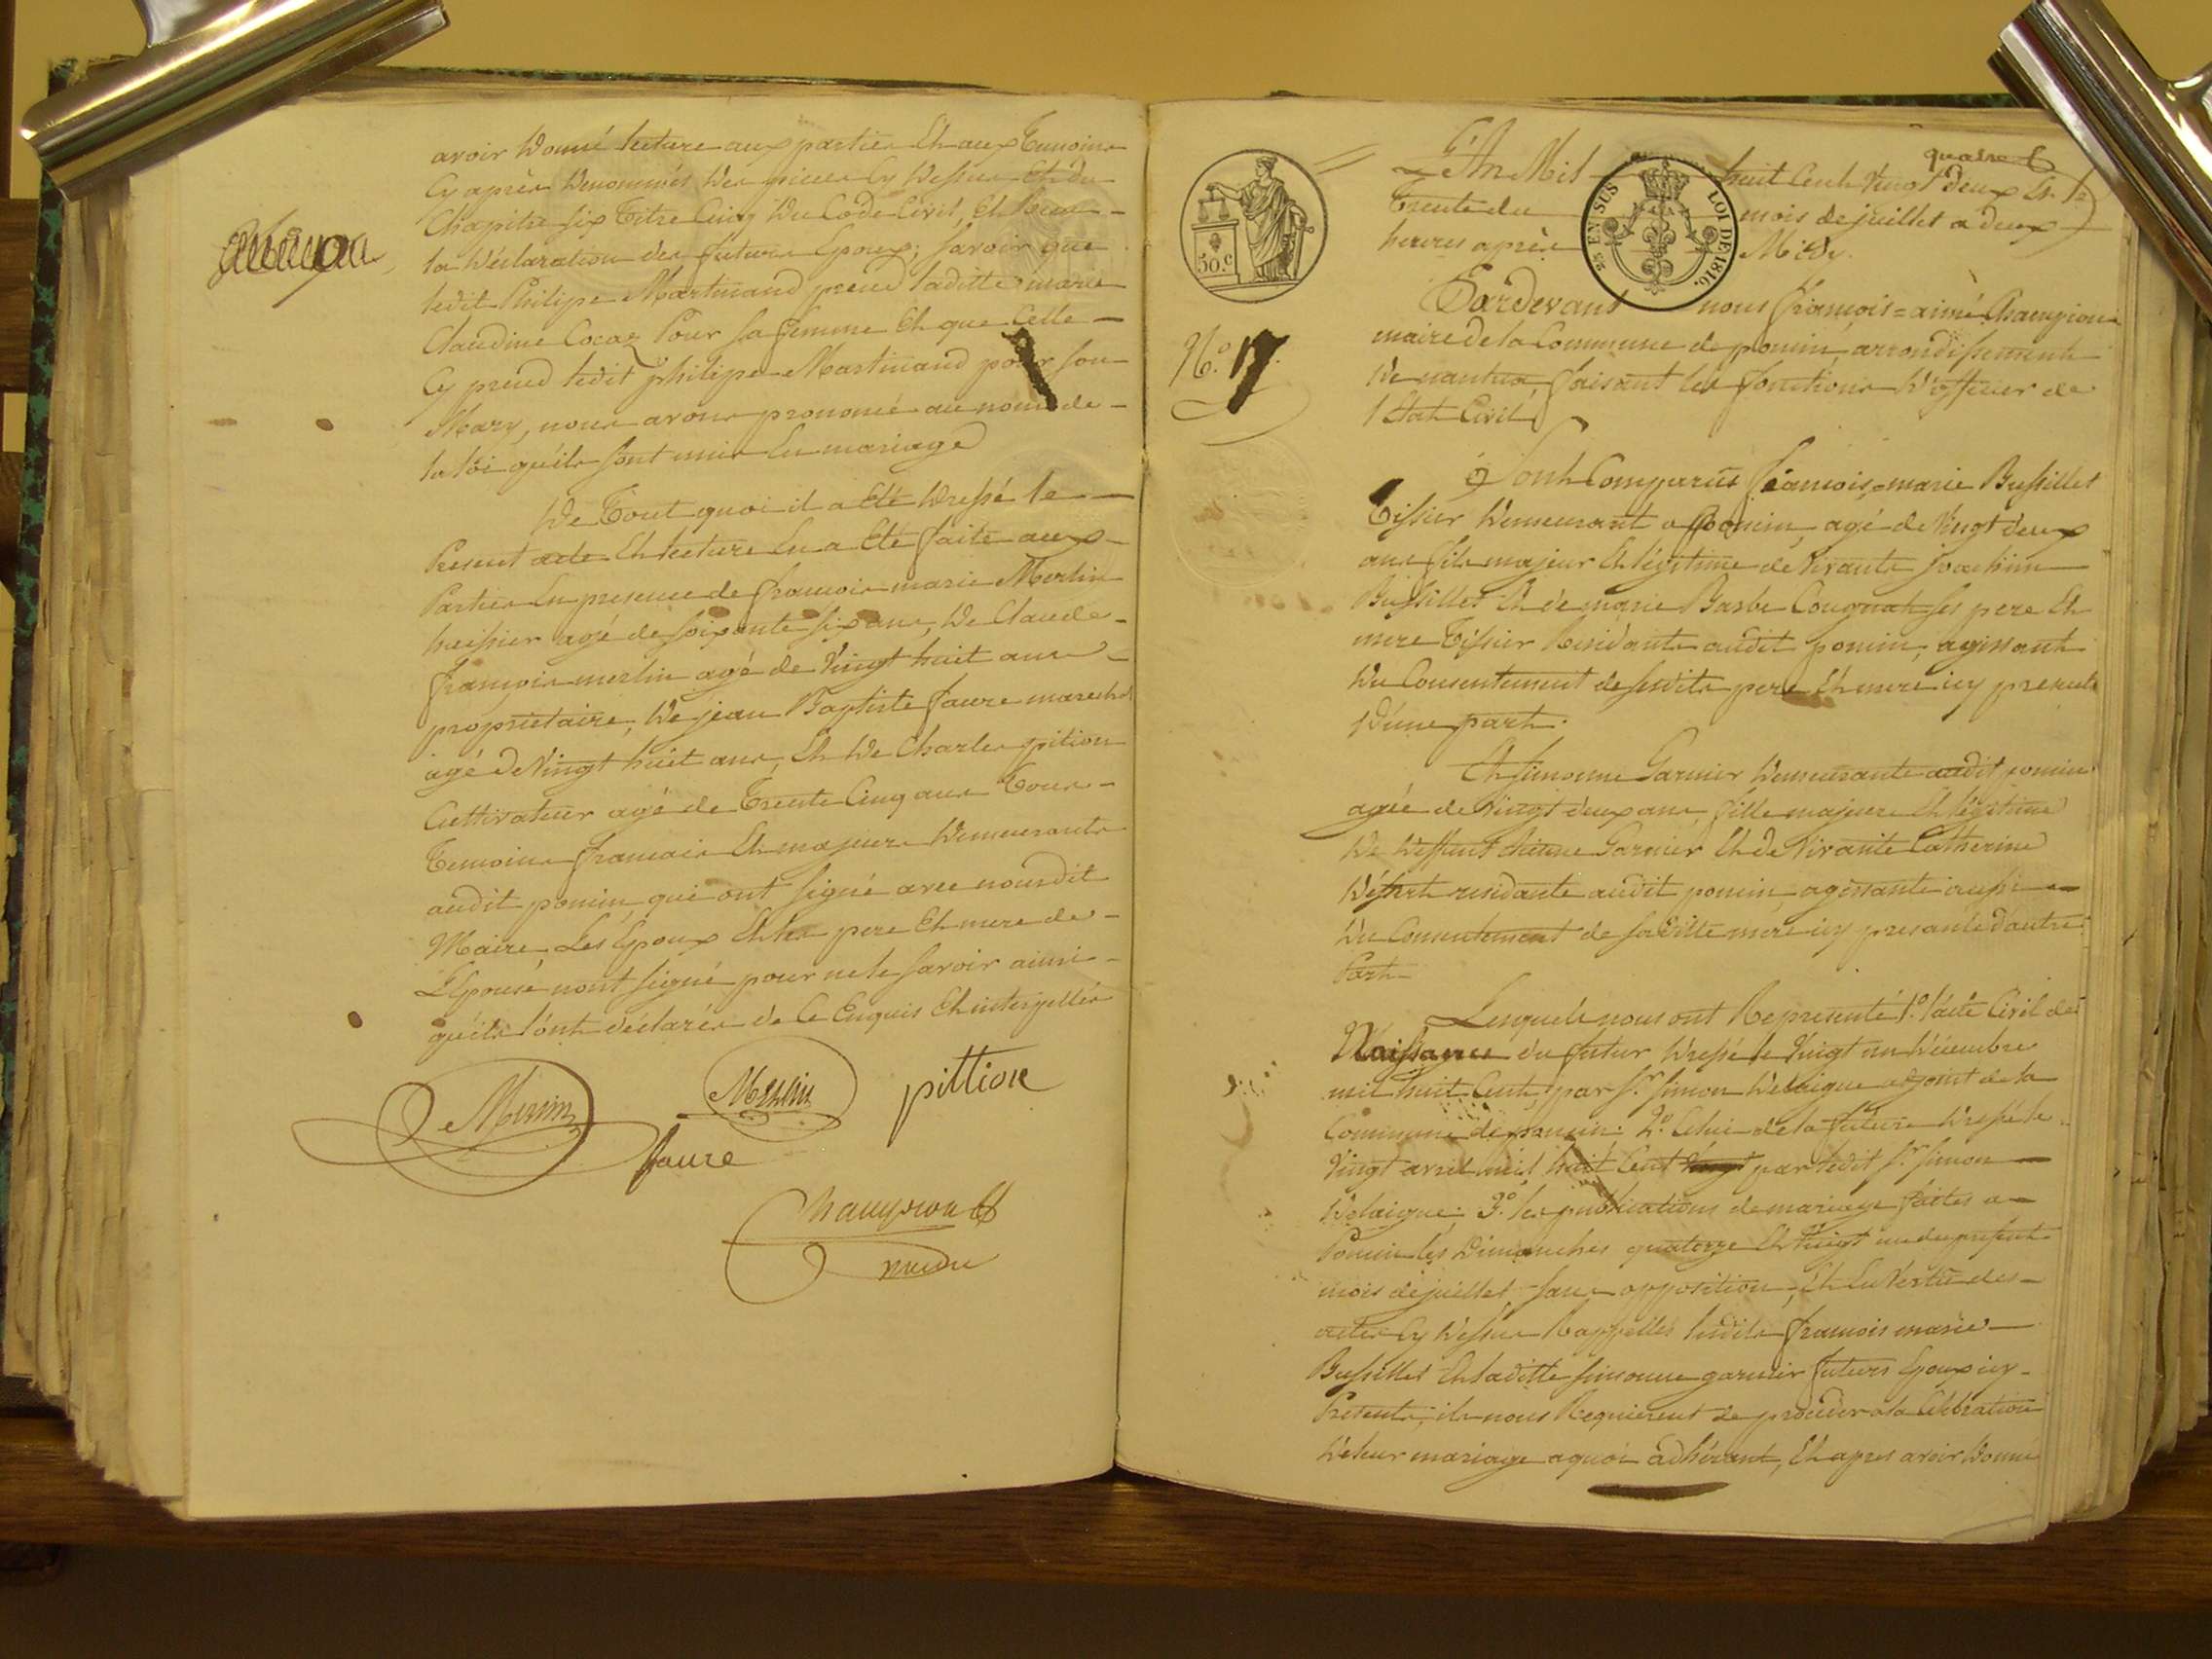 avoir donné lecture aux parties Et aux Temoins
Cy après denommés des pieces Cy dessus Et du
Chapitre six Titre Cinq du Code Civil, Et
la déclaration des futurs Epoux; savoir que
ledit Philipe Martinand prend laditte marie
Claudine Cocaz Pour sa femme Et que Celle
Cy prend ledit philipe Martinand pour son
Mary, nous avons prononcé au nom de
la loi qu'ils sont unis En mariage
De Tout quoi il a Eté dressé le
Present acte Et lecture En a Eté faite aux
Parties En presence de françois marie Merlin
huissier agé de soixante six ans, de Claude
françois merlin agé de Vingt huit ans
propriétaire, de jean Baptiste faure marechal
agé de Vingt huit ans, Et de Charles pition
Cultivateur agé de Trente Cinq ans Tous
Temoins francais Et majeurs demeurants
audit poncin qui ont signé avec nousdit
Maire, Les Epoux Et les pere Et mere de
L'Epouse n'ont signé pour ne le savoir ainsi
qu'ils l'ont déclarés de Ce Enquis Et interpellés
Merlin
Merlin
pittion
faure
Champion
maire
quatre 6
L'An Mil huit Cent Vingt deux Et le
Trente du mois de juillet a deux
heures après Midy.
EN SUS LOI DE 1816.
50.c
N.o 17.
Pardevant nous françois=aimé Champion
maire de la Commune de poncin, arrondissement
de nantua, faisant les fonctions d'officier de
l'Etat Civil
Sont Comparus françois=marie Bussillet
Tissier demeurant a poncin, agé de Vingt deux
ans fils majeur Et légitime de Vivants Joachim
Bussillet Et de marie Barbe Cougnat ses pere Et
mere Tissier Residants audit poncin, agissant
du Consentement de sesdits pere Et mere icy presents
d'une part.
Et simonne Garnier demeurante audit poncin
agée de Vingt deux ans, fille majeure Et légitime
de deffunt Garnier Et de Vivante Catherine
residante audit poncin, agissante aussi
du Consentement de saditte mere icy presante d'autre
Part
Lesquels nous ont Representé 1.o l'acte Civil de
Naissance du futur dressé le Vingt un décembre
mil huit Cent, par s.r simon Delaigue adjoint de la
Commune de poncin. 2.o Celui de la future dressé le
Vingt avril mil huit Cent par ledit s.r simon
Delaigue. 3.o les publications de mariage faites a
Poncin les Dimanches quatorze Et Vingt un du present
mois de juillet sans opposition, Et En Vertu des
actes Cy dessus Rappelles lesdits françois marie
Bussillet Et laditte simonne garnier futurs Epoux icy
Presents, ils nous Requierent de proceder a la Célébration
de leur mariage a quoi adhérant, Et apres avoir donné